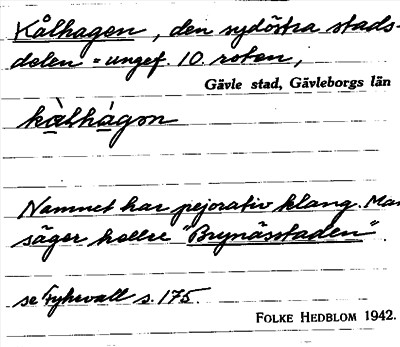 Kålhagen, den sydöstra stads-
delen = ungef. 10. roten,
Gävle stad, Gävleborgs län
kàlhágən
Namnet har pejorativ klang. Man
säger hellre "Brynässtaden".
se Fyhrvall s. 175.
FOLKE HEDBLOM 1942.